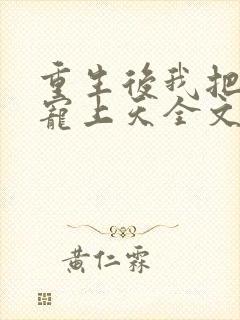 重生後我把
寵上天全文
黃仁霖